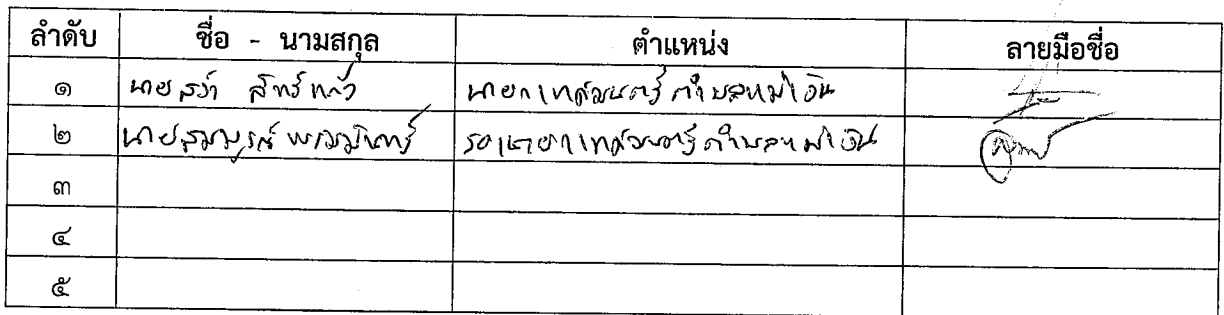 ลำดับ ชื่อ - นามสกุล ตำแหน่ง ลายมือชื่อ
๑ นายสว่า สิทธิแก้ว นายกเทศมนตรีตำบลแม่เงิน
๒ นายสมบูรณ์ พรหมมินทร์ รองนายกเทศมนตรีตำบลแม่เงิน
๓
๔
๕